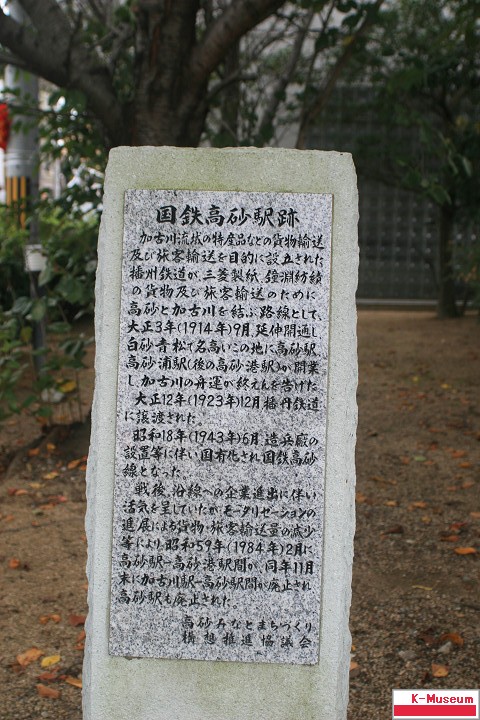 国鉄高砂駅跡
加古川流域の特産品などの貨物輸送
及び旅客輸送を目的に設立された
播州鉄道が、三菱製紙、鐘淵紡績
の貨物及び旅客輸送のために
高砂と加古川を結ぶ路線として、
大正3年(1914年)9月、延伸開通し
白砂青松で名高いこの地に高砂駅、
高砂浦駅(後の高砂港駅)が開業
し、加古川の舟運が終えんを告げた。
大正12年(1923年)12月播丹鉄道
に譲渡された。
昭和18年(1943年)6月造兵廠の
設置等に伴い国有化され国鉄高砂
線となった。
戦後、沿線への企業進出に伴い
活気を呈していたが、モータリゼーションの
進展による貨物・旅客輸送量の減少
等により、昭和59年(1984年)2月に
高砂駅ー高砂港駅間が、同年11月
末に加古川駅ー高砂駅間が廃止され
高砂駅も廃止された。
高砂みなとまちづくり
構想推進協議会
K-Museum